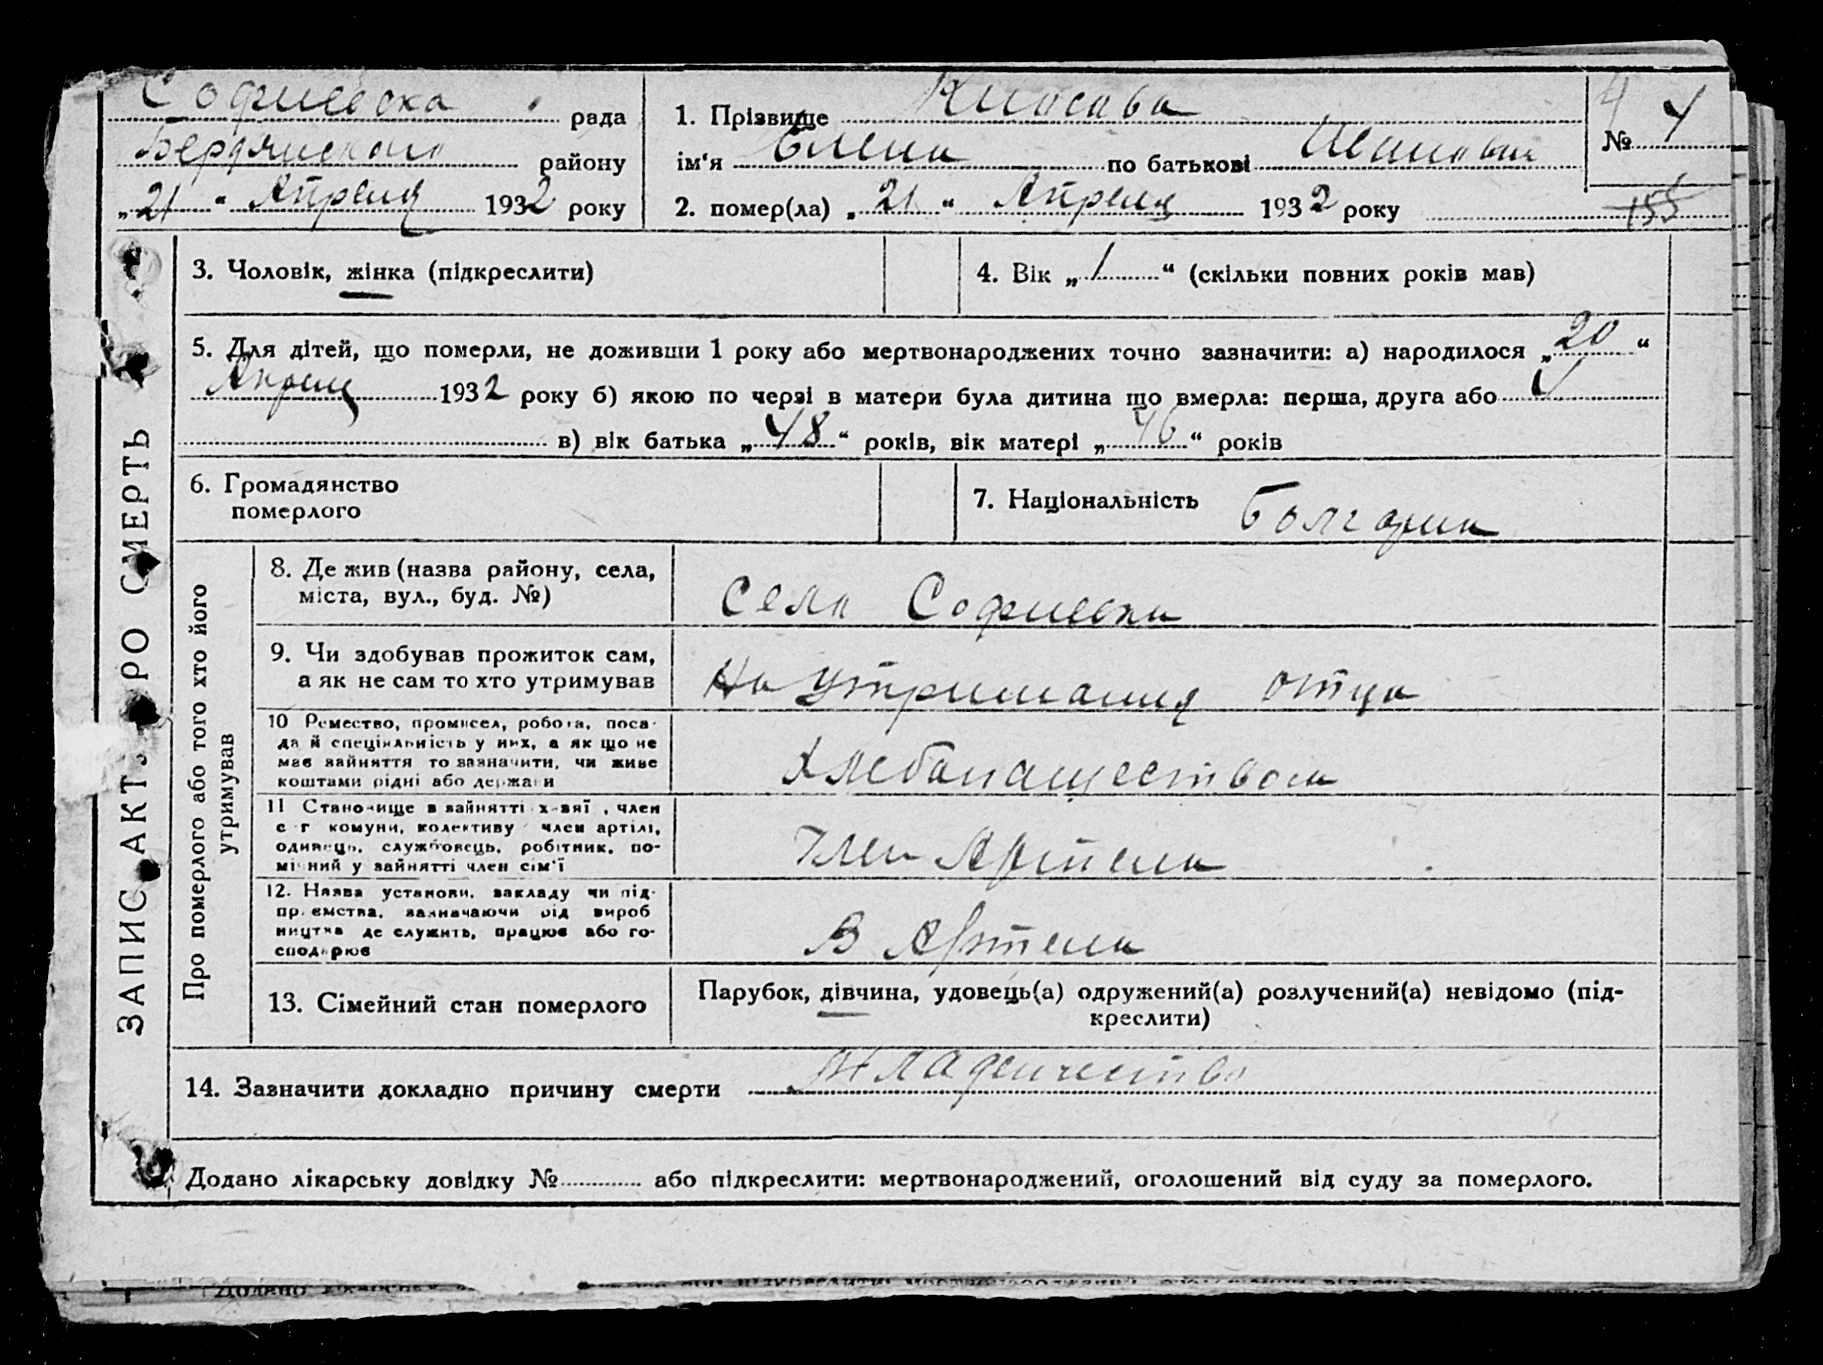 Софиевска рада
Бердянского району
„21“ Апреля 1932 року
1. Прізвище Кио сава
ім'я Елена по батькові Ивановна
2. помер(ла) „21“ Апреля 1932 року
№ 4
155
3. Чоловік, жінка (підкреслити)
4. Вік „1“ (скільки повних років мав)
5. Для дітей, що померли, не доживши 1 року або мертвонароджених точно зазначити: а) народилося „20“
Апреля 1932 року б) якою по черзі в матери була дитина що вмерла: перша, друга або
в) вік батька „48“ років, вік матері „46“ років
6. Громадянство
померлого
7. Національність Болгарин
ЗАПИС АКТУ ПРО СМЕРТЬ
Про померлого або того хто його
утримував
8. Де жив (назва району, села,
міста, вул., буд. №)
Села Софиевки
9. Чи здобував прожиток сам,
а як не сам то хто утримував
На утримания отца
10 Ремество, промисел, робота, поса-
да й спеціяльність у них, а як що не
має зайняття то зазначити, чи живе
коштами рідні або держави
Хлебапашеством
11 Становище в зайнятті хазяї, член
с-г комуни, колективу член артілі,
одинець, службовець, робітник, по-
мічний у зайнятті член сім'ї
Член Артели
12. Назва установи, закладу чи під-
приємства, зазначаючи рід вироб
ництва де служить, працює або го-
сподарює
В Артели
13. Сімейний стан померлого
Парубок, дівчина, удовець(а) одружений(а) розлучений(а) невідомо (під-
креслити)
14. Зазначити докладно причину смерти Младенчество
Додано лікарську довідку № або підкреслити: мертвонароджений, оголошений від суду за померлого.